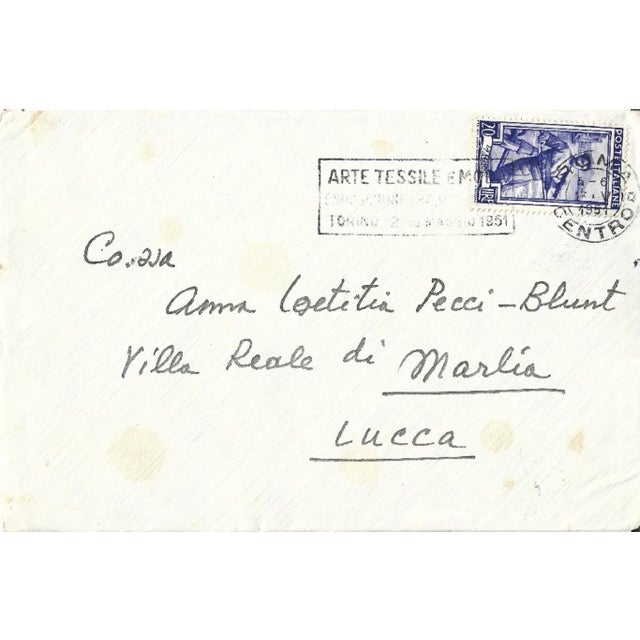 POSTE ITALIANE
20
LIRE
ARTE TESSILE E MO
TORINO 2 MAGGIO 1951
1951
CENTRO
Co.ssa
Anna Laetitia Pecci-Blunt
Villa Reale di Marlia
Lucca